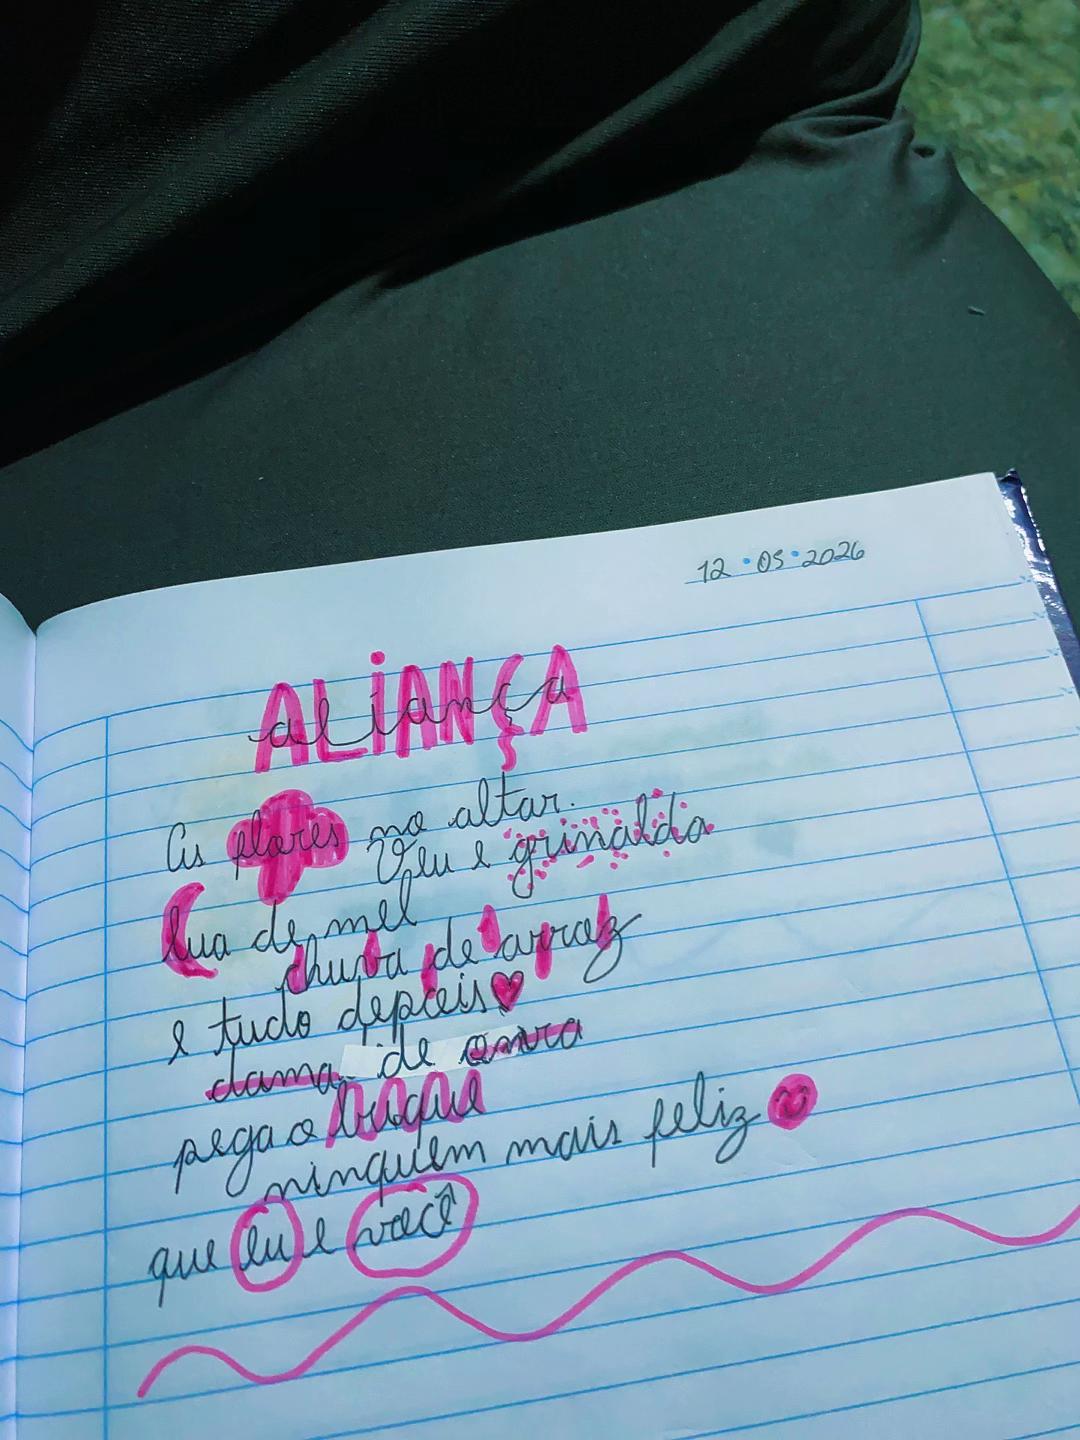 12.05.2026
ALiANÇA
aliança
As flores no altar.
Véu e grinalda
lua de mel
chuva de arroz
e tudo depois
dama de onra
pega o buque
ninguem mais feliz
que eu e você